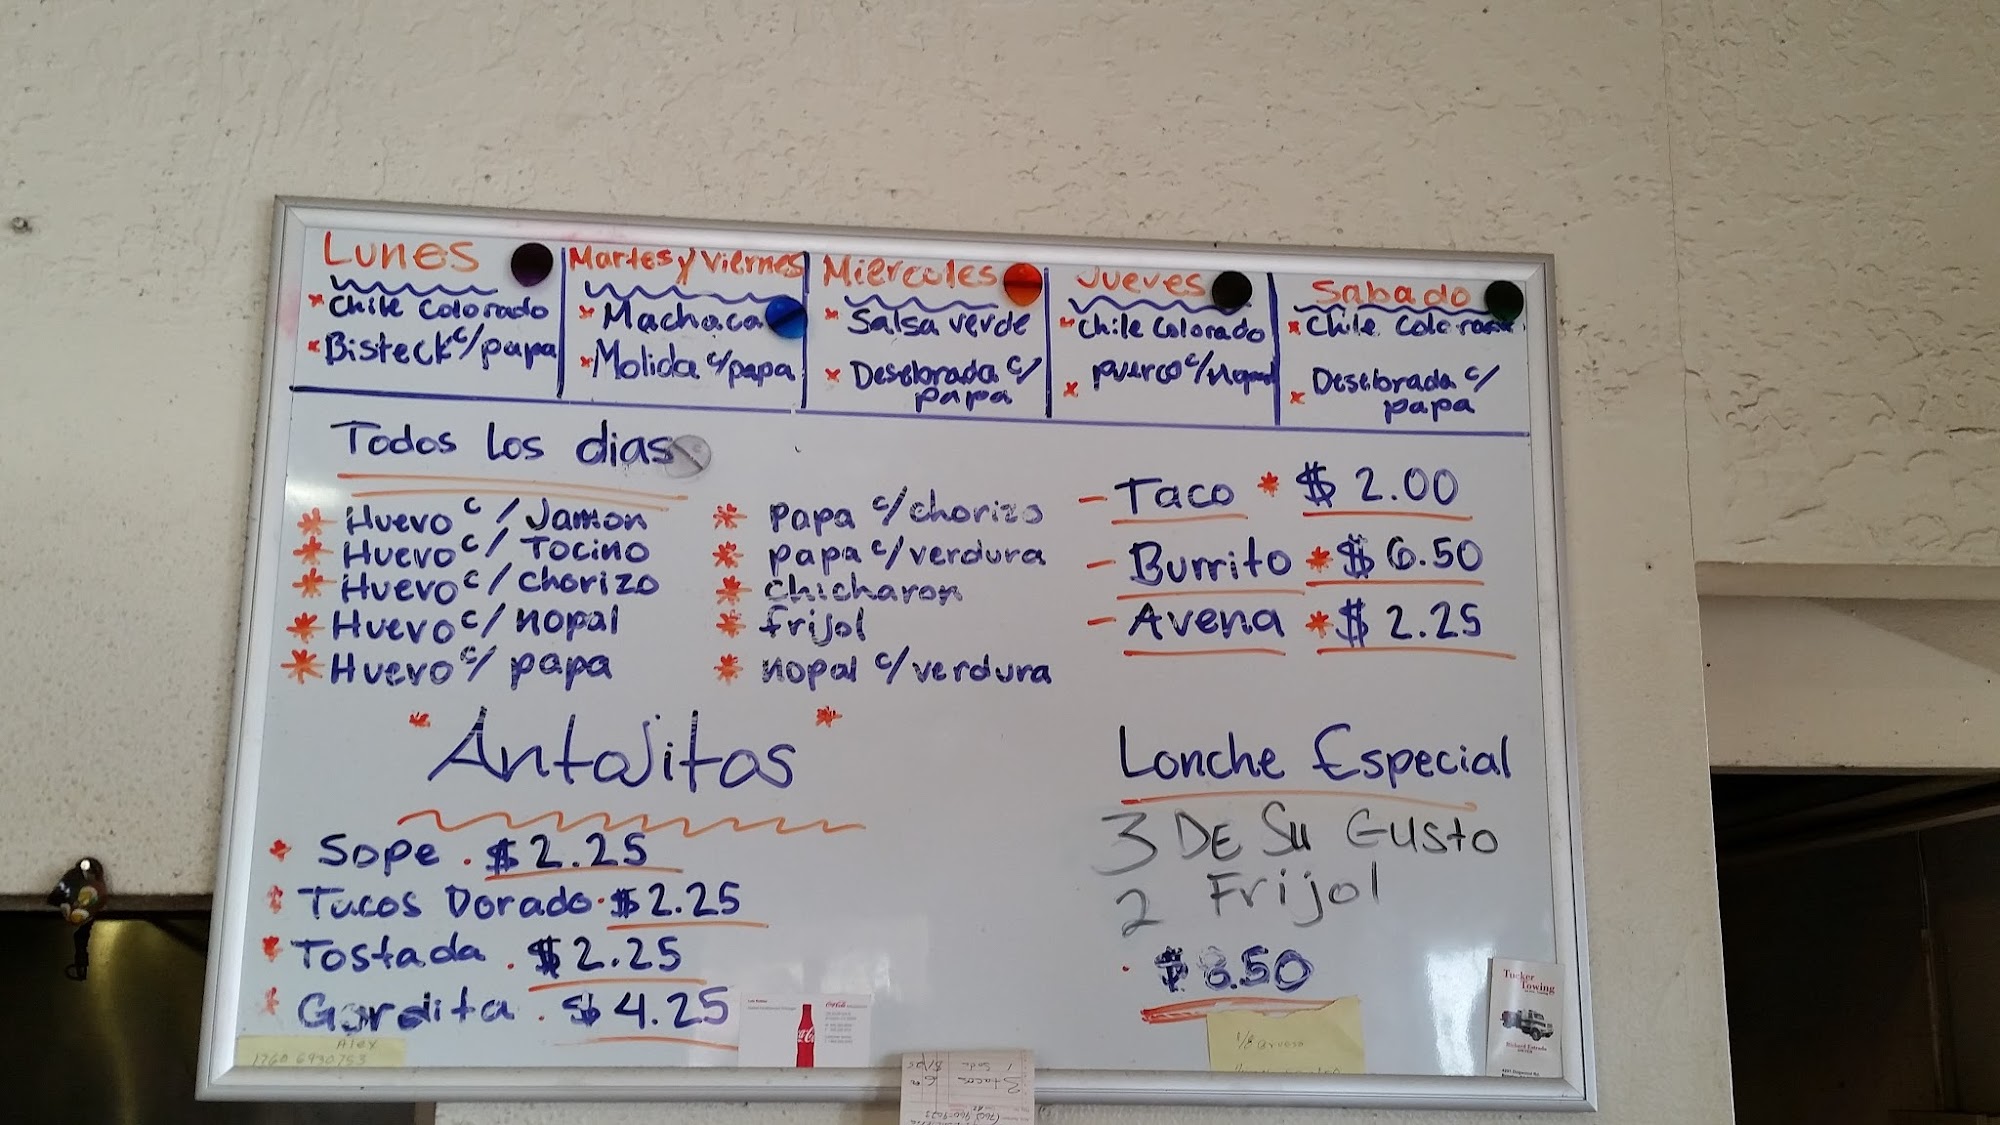 Lunes
* Chile Colorado
* Bisteck c/papa
Martes y Viernes
* Machaca
* Molida c/papa
Miercoles
* Salsa verde
* Desebrada c/
papa
Jueves
* Chile Colorado
* puerco c/nopal
Sabado
* Chile Colorado
* Desebrada c/
papa
Todos los dias
* Huevo c/Jamon
* Huevo c/Tocino
* Huevo c/chorizo
* Huevo c/nopal
* Huevo c/papa
* papa c/chorizo
* papa c/verdura
* chicharon
* frijol
* nopal c/verdura
- Taco * $ 2.00
- Burrito * $ 6.50
- Avena * $ 2.25
* Antojitos *
* Sope . $ 2.25
* Tacos Dorado . $ 2.25
* Tostada . $ 2.25
* Gordita . $ 4.25
Lonche Especial
3 DE Su Gusto
2 Frijol
. $ 8.50
Alex
1760 6930753
Coca-Cola
Tucker
Towing
Richard Estrada
3 tacos
1 Soda